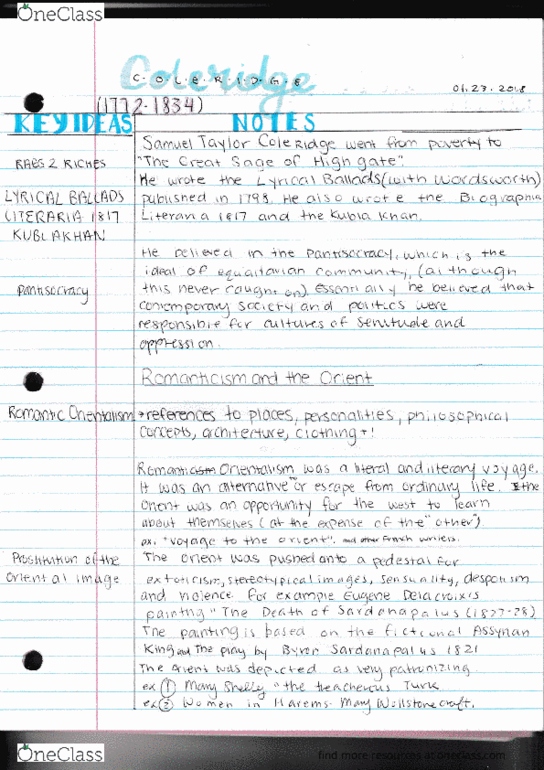 OneClass
Coleridge
C·O·L·E·R·I·D·G·E
01.23.2018
(1772-1834)
KEY IDEAS NOTES
Samuel Taylor Coleridge went from poverty to
RAGS 2 RICHES "The Great Sage of Highgate".
He wrote the Lyrical Ballads (with Wordsworth)
LYRICAL BALLADS published in 1798. He also wrote the Biographia
LITERARIA 1817 Literaria 1817 and the Kubla Khan.
KUBLAKHAN
He believed in the Pantisocracy, which is the
ideal of equalitarian community, (although
Pantisocracy this never caught on) Essentially he believed that
contemporary society and politics were
responsible for cultures of servitude and
oppression.
Romanticism and the Orient
Romantic Orientalism → references to places, personalities, philosophical
concepts, architecture, clothing +!
Romanticism Orientalism was a literal and literary voyage.
It was an alternative or escape from ordinary life. the
Orient was an opportunity for the west to learn
about themselves (at the expense of the "other")
ex. "voyage to the orient". and other French writers.
Prostitution of the The Orient was pushed onto a pedestal for
Oriental image extoticism, stereotypical images, sensuality, despotism
and violence for example Eugene Delacroix's
painting "The Death of Sardanapalus (1827-28)
The painting is based on the fictional Assyrian
King and The play by Byron Sardanapalus 1821
The orient was depicted as very patronizing
ex ① Mary Shelly "the treacherous Turk
ex ② Women in Harems- Mary Wollstonecraft.
OneClass
find more resources at oneclass.com